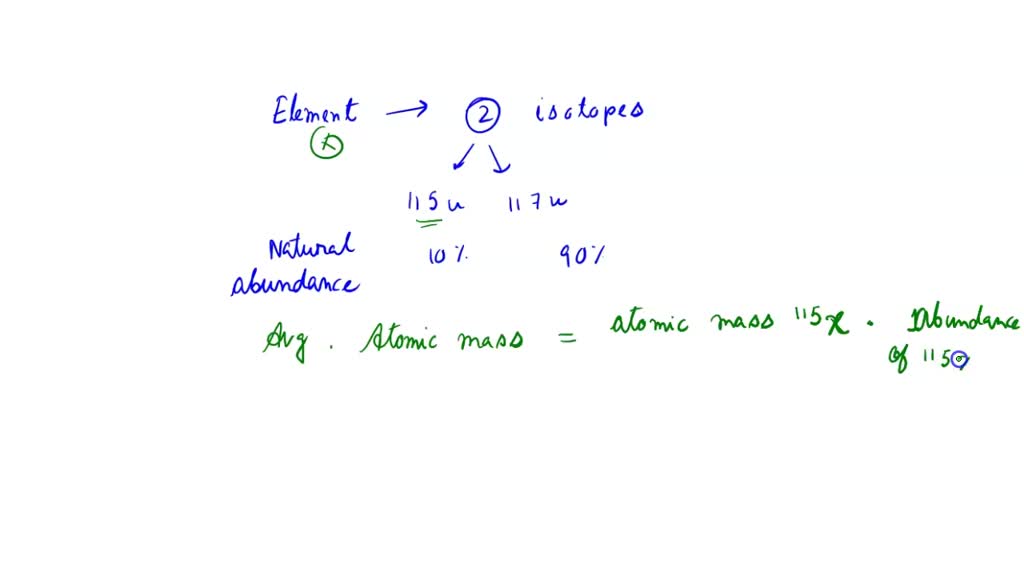 Element → 2 isotopes
X
115 u 117 u
Natural 10% 90%
abundance
Avg. Atomic mass = atomic mass 115X . Abundance
of 115